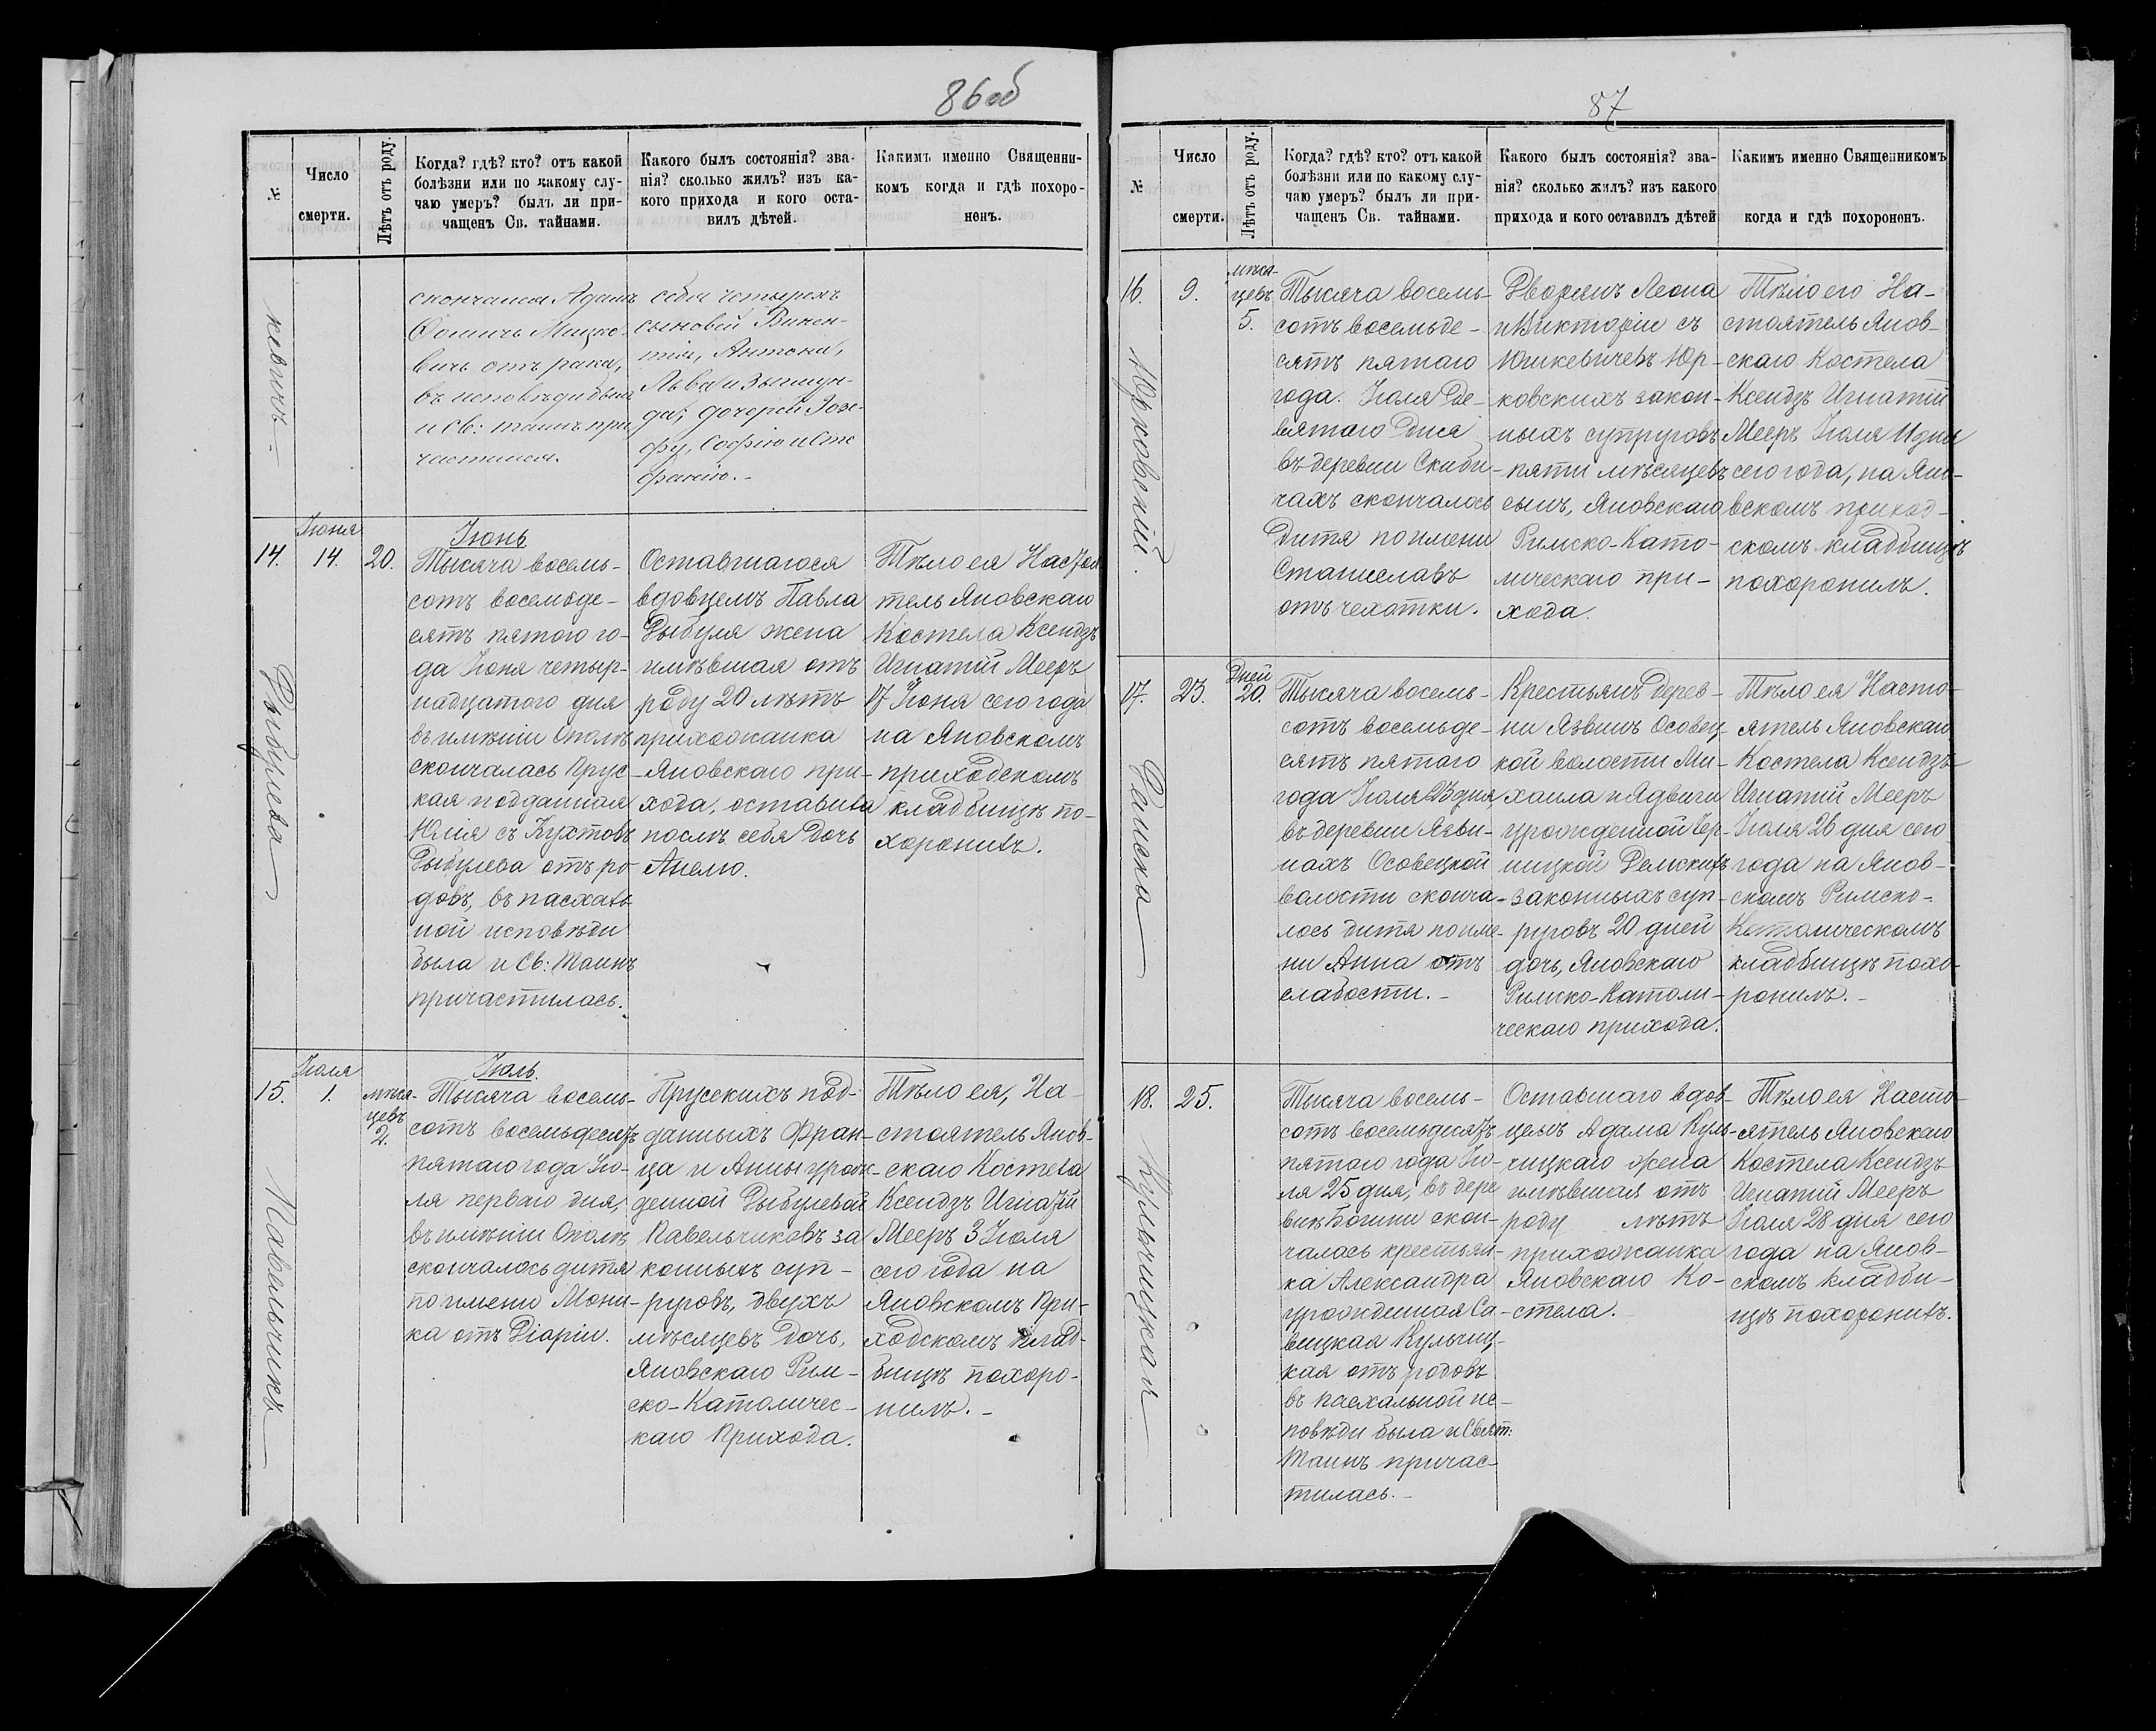 86 об
№
Число
смерти.
Лѣтъ отъ роду.
Когда? гдѣ? кто? отъ какой
болѣзни или по какому слу-
чаю умеръ? былъ ли при-
чащенъ Св. тайнами.
Какого былъ состоянія? зва-
нія? сколько жилъ? изъ ка-
кого прихода и кого оста-
вилъ дѣтей.
Какимъ именно Священни-
комъ когда и гдѣ похоро-
ненъ.
скончался Адамъ
Ѳомичъ Мицке-
вичъ отъ рака,
въ исповѣди былъ
и Св: таинъ при
частился.
себя четырехъ
сыновей Викен-
тія, Антона,
Льва и Зыгмун-
да; дочерей Юзе-
фу, Софію и Сте
фанію.-
14.
Рыбулева
Іюня
14.
20.
Іюнь
Тысяча восемь-
сотъ восемьде-
сятъ пятого го-
да Іюня четыр-
надцатого дня
въ имѣніи Ополѣ
скончалась Прус-
кая подданная
Юлія съ Кухтовъ
Рыбулева отъ ро-
довъ, въ пасхаль
ной исповѣди
была и Св: Таинъ
причастилась.
Оставшагося
вдовцемъ Павла
Рыбуля жена
имѣвшая отъ
роду 20 лѣтъ
прихожанка
Яновскаго при-
хода, оставила
послѣ себя дочь
Анелю.
Тѣло ея Настоя
тель Яновскаго
Костела Ксендзъ
Игнатій Мееръ
17 Іюня сего года
на Яновскомъ
приходскомъ
кладбищѣ по-
хоронилъ.
15.
Павельчикъ
Іюля
1.
мѣся-
цевъ
2.
Іюль.
Тысяча восемь-
сотъ восемьдесятъ
пятаго года Ію-
ля перваго дня,
въ имѣніи Ополѣ
скончалось дитя
по имени Мони-
ка отъ Діаріи.
Прусскихъ под-
данныхъ Фран-
ца и Анны урож-
денной Рыбулевой
Павельчиковъ за
конныхъ суп-
руговъ, двухъ
мѣсяцевъ дочь,
Яновскаго Рим-
ско-Католичес-
каго Прихода.
Тѣло ея, На-
стоятель Янов-
скаго Костела
Ксендзъ Игнатій
Мееръ 3 Іюля
сего года на
Яновскомъ При-
ходскомъ клад-
бищѣ похоро-
нилъ.-
87
№
Число
смерти.
Лѣтъ отъ роду.
Когда? гдѣ? кто? отъ какой
болѣзни или по какому слу-
чаю умеръ? былъ ли при-
чащенъ Св. тайнами.
Какого былъ состоянія? зва-
нія? сколько жилъ? изъ какого
прихода и кого оставилъ дѣтей
Какимъ именно Священникомъ
когда и гдѣ похороненъ.
16.
Юрковскій.
9.
мѣся-
цевъ
5.
Тысяча восемь-
сотъ восемьде-
сятъ пятаго
года. Іюля Де-
вятаго Дня
въ деревни Скиби-
чахъ скончалось
Дитя по имени
Станиславъ
отъ чехотки.
Дворянъ Леона
и Викторіи съ
Юр-
ковскихъ закон-
ныхъ супруговъ
пяти мѣсяцевъ
сынъ, Яновскаго
Римско-Като-
лическаго при-
хода.
Тѣло его На-
стоятель Янов-
скаго Костела
Ксендзъ Игнатій
Мееръ Іюля 11 дня
сего года, на Яно-
вскомъ приход-
скомъ кладбищѣ
похоронилъ.
17.
23.
Дней
20.
Тысяча восемь-
сотъ восемьде-
сятъ пятаго
года Іюля 23 дня
въ деревни Язви-
нахъ Осовецкой
волости сконча-
лось дитя по име-
ни Анна отъ
слабости.-
Крестьянъ дерев-
ни Язвинъ Осовец-
кой волости Ми-
хаила и Ядвиги
урожденной Чер-
ницкой
законныхъ суп-
руговъ 20 дней
дочь, Яновскаго
Римско-Католи-
ческаго прихода.
Тѣло ея Насто-
ятель Яновскаго
Костела Ксендзъ
Игнатій Мееръ
Іюля 26 дня сего
года на Янов-
скомъ Римско-
Католическомъ
кладбищѣ похо-
ронилъ.-
18.
Кульчицкая
25.
Тысяча восемь-
сотъ восемьдесятъ
пятого года Ію-
ля 25 дня, въ дере
внѣ Богини скон-
чалась крестьян-
ка Александра
урожденная Са-
вицкая Кульчиц-
кая отъ родовъ
въ пасхальной ис-
повѣди была и Свят:
Таинъ причас-
тилась.-
Оставшаго вдов-
цемъ Адама Куль-
чицкаго жена
имѣвшая отъ
роду лѣтъ
прихожанка
Яновскаго Ко-
стела.-
Тѣло ея Насто-
ятель Яновскаго
Костела Ксендзъ
Игнатій Мееръ
Іюля 28 дня сего
года на Янов-
скомъ кладби-
щѣ похоронилъ.